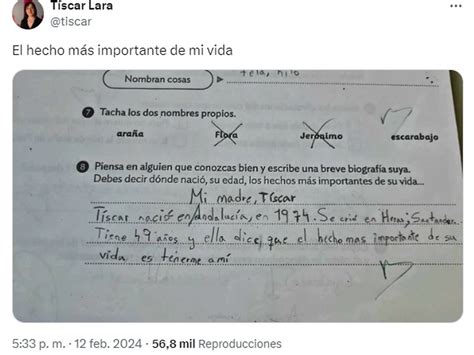 Tíscar Lara
@tiscar
El hecho más importante de mi vida
Nombran cosas
tela, hilo
7 Tacha los dos nombres propios.
araña Flora Jerónimo escarabajo
8 Piensa en alguien que conozcas bien y escribe una breve biografía suya.
Debes decir dónde nació, su edad, los hechos más importantes de su vida...
Mi madre, Tíscar
Tíscar nació en Andalucía, en 1974. Se crió en Heras, Santander.
Tiene 49 años y ella dice que el hecho mas importante de su
vida es tenerme a mí
5:33 p. m. · 12 feb. 2024 · 56,8 mil Reproducciones